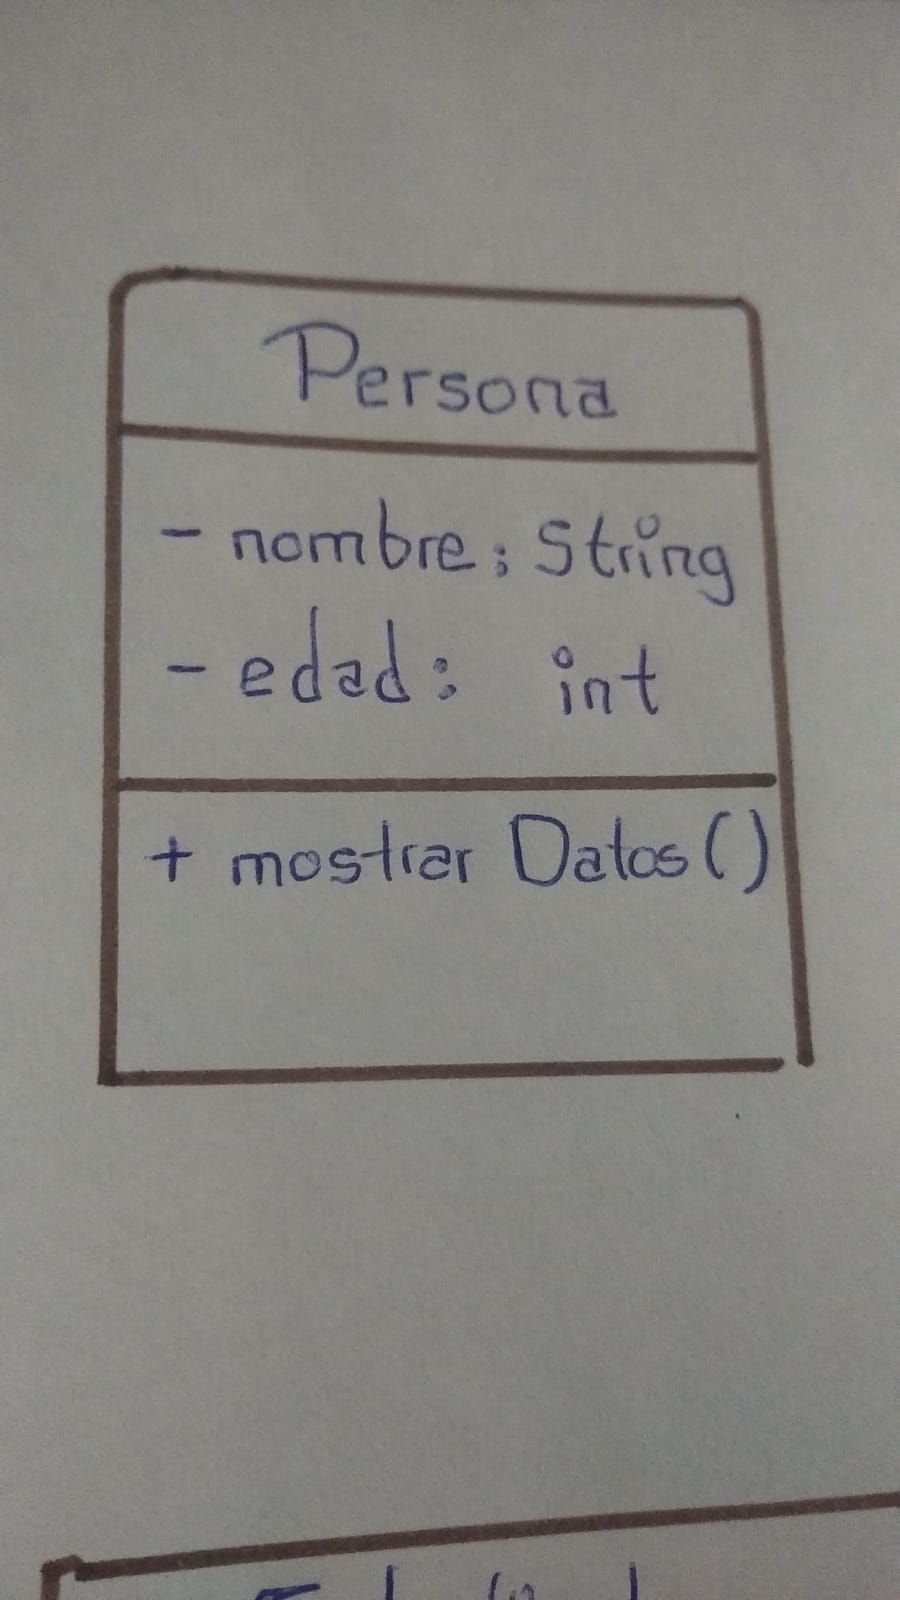 Persona
- nombre: String
- edad: int
+ mostrar Datos()